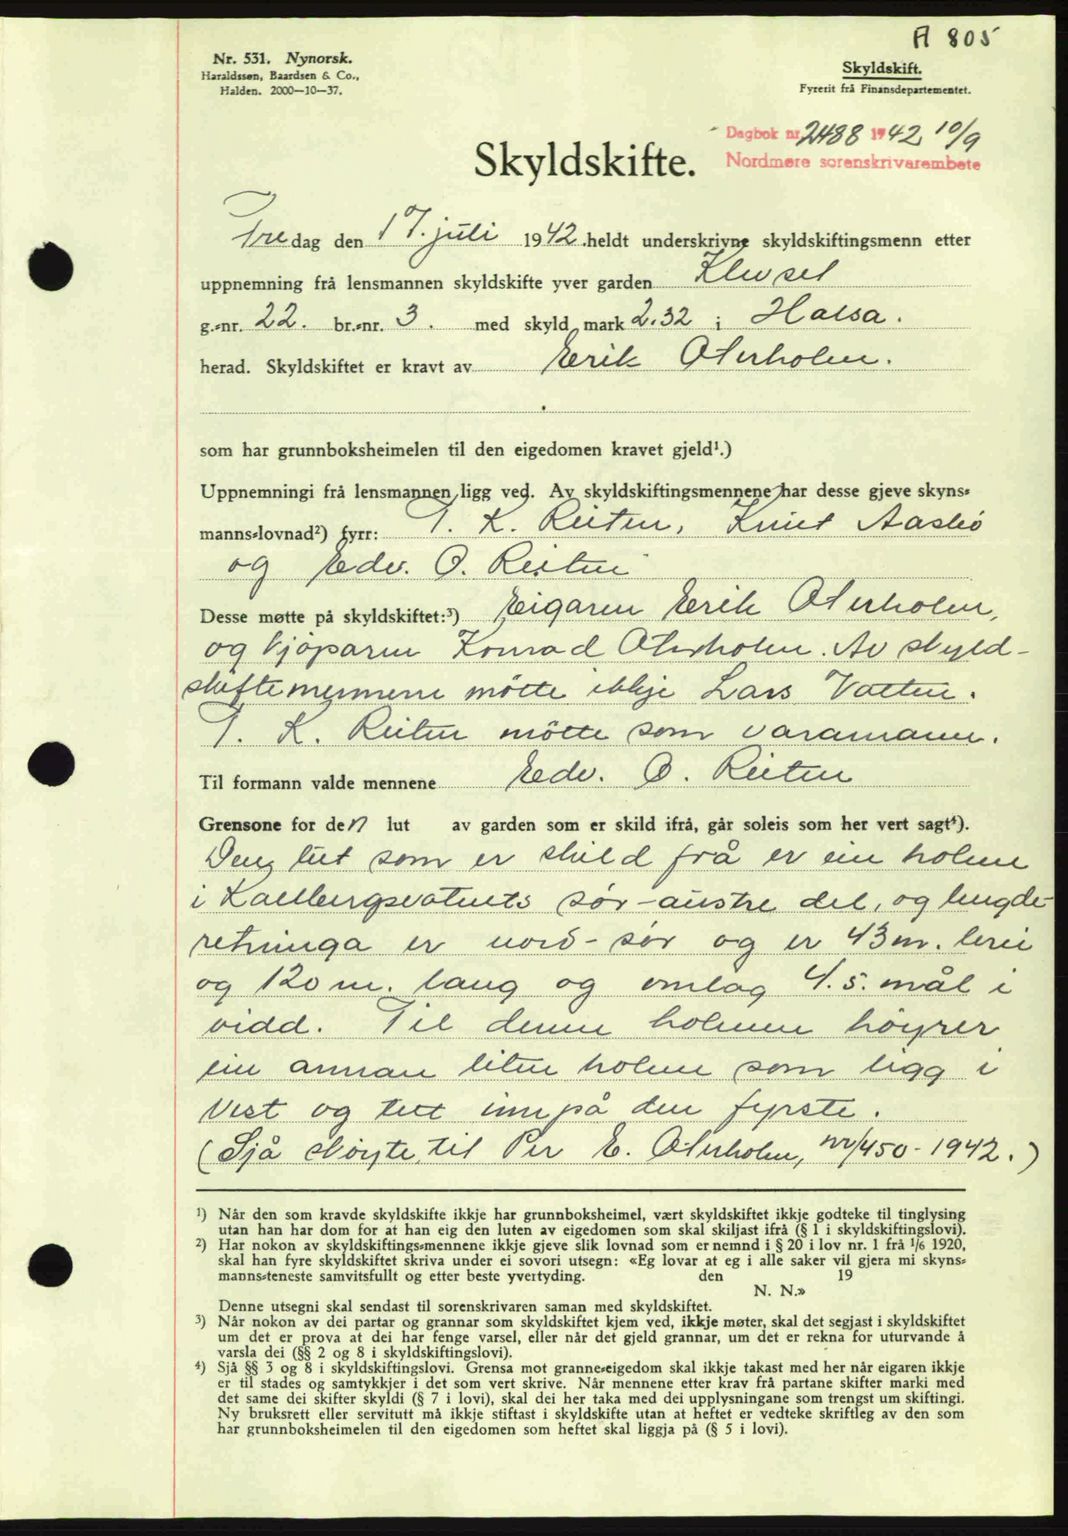 A 805
Nr. 531. Nynorsk.
Haraldssen, Baardsen & Co.,
Halden. 2000—10—37.
Skyldskift.
Fyreskrift frå Finansdepartementet.
Dagbok nr. 2488 1942 10/9
Nordmøre sorenskrivarembete
Skyldskifte.
Fredag den 17. juli 1942. heldt underskrivne skyldskiftingsmenn etter
uppnemning frå lensmannen skyldskifte yver garden Klevset
g.-nr. 22. br.-nr. 3. med skyld mark 2.32 i Halsa.
herad. Skyldskiftet er kravt av Erik Oterholm.
som har grunnboksheimelen til den eigedomen kravet gjeld¹.)
Uppnemningi frå lensmannen ligg ved. Av skyldskiftingsmennene har desse gjeve skyns-
manns-lovnad²) fyrr: T. K. Reiten, Knut Aasbö
og Edv. O. Reiten
Desse møtte på skyldskiftet:³) Eigaren Erik Oterholm,
og kjöparen Konrad Oterholm. Av skyld-
skiftemennene mötte ikkje Lars Vatten.
T. K. Reiten mötte som varamann.
Til formann valde mennene Edv. O. Reiten
Grensone for den lut av garden som er skild ifrå, går soleis som her vert sagt⁴).
Den lut som er skild frå er ein holme
i Kallbergsvatnets sör-austre del, og lengde-
retninga er nord-sör og er 43 m. brei
og 120 m. lang og omlag 4.5. mål i
vidd. Til denne holmen höyrer
ein annan liten holme som ligg i
Vest og tett innpå den fyrste.
(Sjå sköyte til Per E. Oterholm, nr/450-1942.)
¹) Når den som kravde skyldskifte ikkje har grunnboksheimel, vært skyldskiftet ikkje godteke til tinglysing
utan han har dom for at han eig den luten av eigedomen som skal skiljast ifrå (§ 1 i skyldskiftingslovi).
²) Har nokon av skyldskiftings-mennene ikkje gjeve slik lovnad som er nemnd i § 20 i lov nr. 1 frå 1/6 1920,
skal han fyre skyldskiftet skriva under ei sovori utsegn: «Eg lovar at eg i alle saker vil gjera mi skyns-
manns-teneste samvitsfullt og etter beste yvertyding. den 19
N. N.»
Denne utsegni skal sendast til sorenskrivaren saman med skyldskiftet.
³) Når nokon av dei partar og grannar som skyldskiftet kjem ved, ikkje møter, skal det segjast i skyldskiftet
um det er prova at dei har fenge varsel, eller når det gjeld grannar, um det er rekna for uturvande å
varsla dei (§§ 2 og 8 i skyldskiftingslovi).
⁴) Sjå §§ 3 og 8 i skyldskiftingslovi. Grensa mot granne-eigedom skal ikkje takast med her når eigaren ikkje
er til stades og samtykkjer i det som vert skrive. Når mennene etter krav frå partane skifter marki med
det same dei skifter skyldi (§ 7 i lovi), skal dei her taka med dei upplysningane som trengst um skiftingi.
Ny bruksrett eller servitutt må ikkje stiftast i skyldskifte utan at heftet er vedteke skriftleg av den som
har grunnboksheimelen til den eigedomen som heftet skal liggja på (§ 5 i lovi).